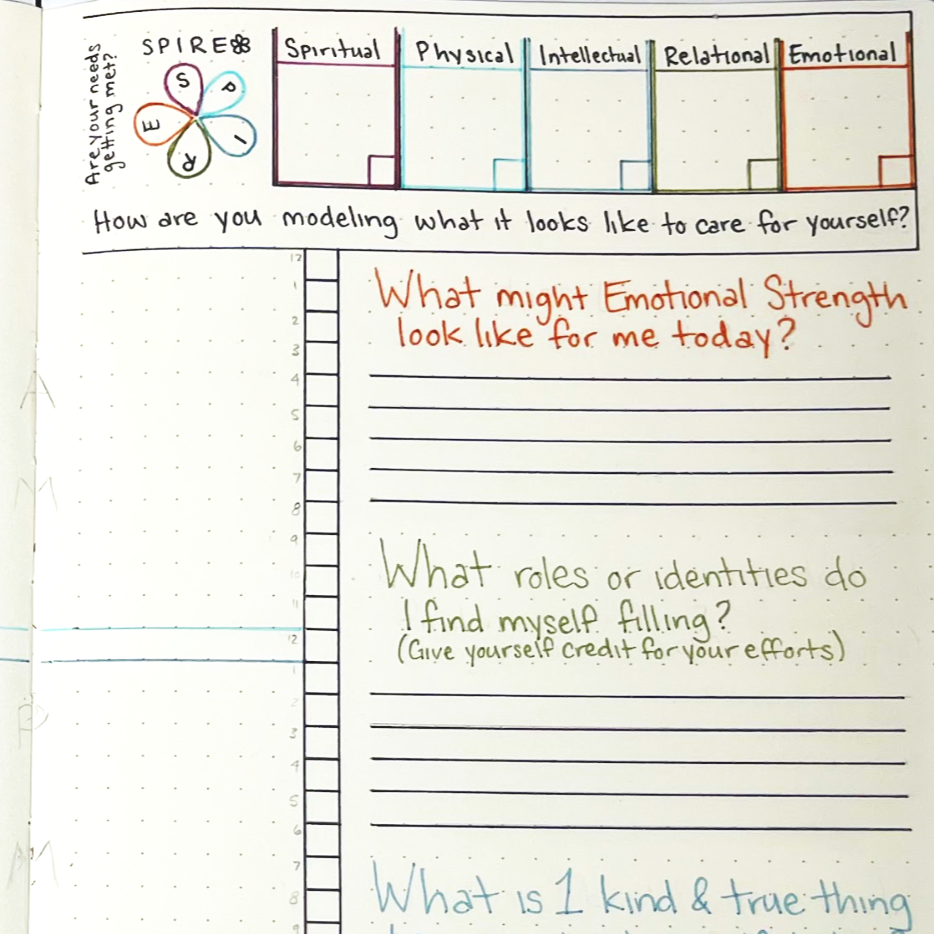 Are your needs
getting met?
SPIRE
S
P
I
R
E
Spiritual
Physical
Intellectual
Relational
Emotional
How are you modeling what it looks like to care for yourself?
12
1
2
3
4
5
6
7
8
9
10
11
12
1
2
3
4
5
6
7
8
9
AM
PM
What might Emotional Strength
look like for me today?
What roles or identities do
I find myself filling?
(Give yourself credit for your efforts)
What is 1 kind & true thing